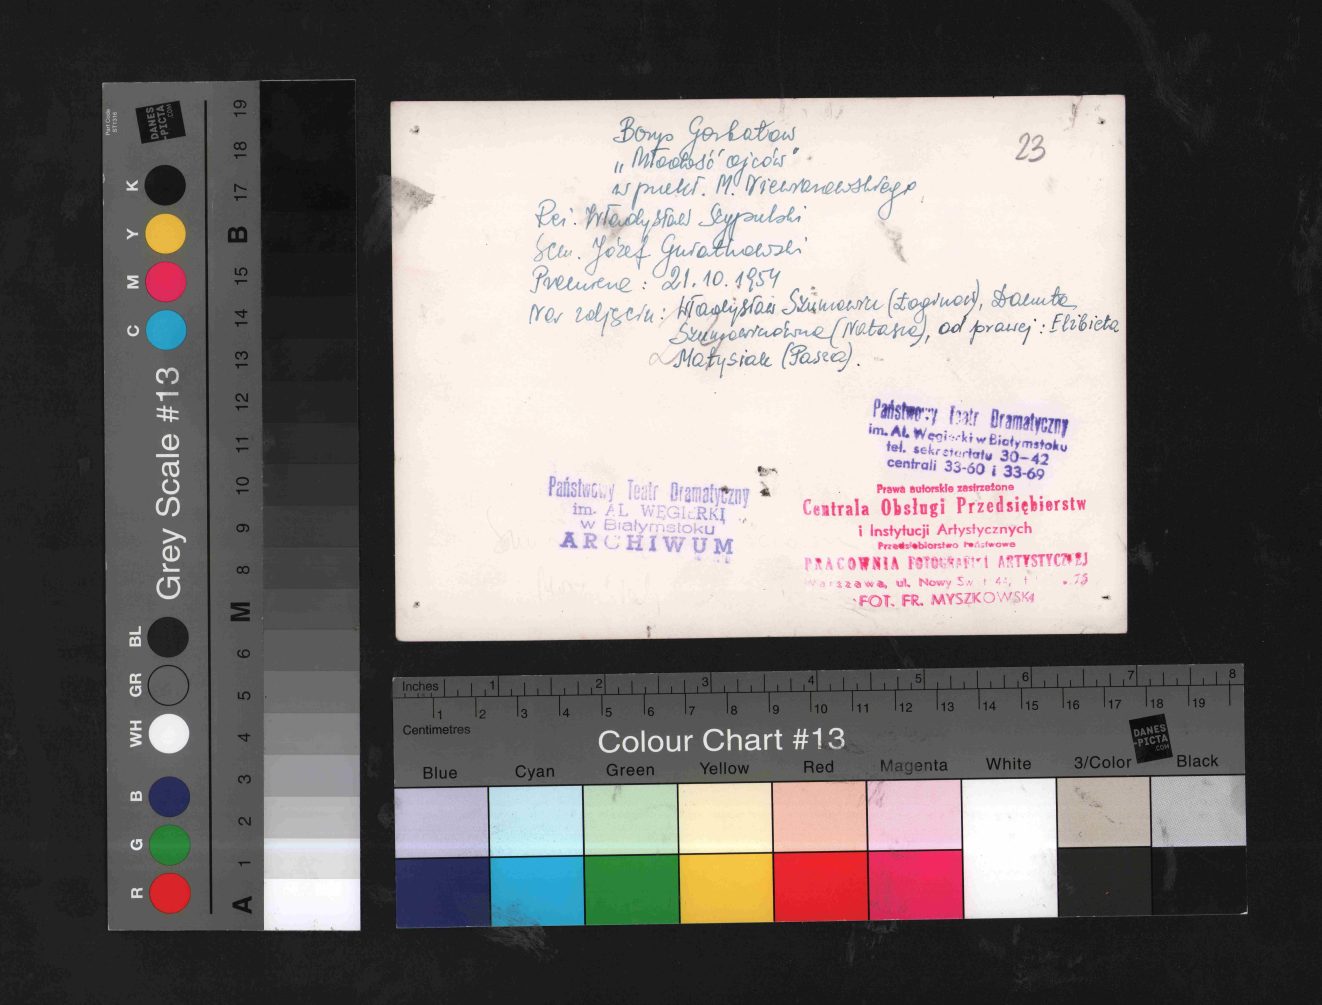 Borys Gorbatow
„Młodość ojców"
w przekł. M.
Reż. Władysław Szypulski
Scen. Józef Gniatkowski
Premiera: 21.10.1954
Na zdjęciu: Władysław Szumowicz (Łoginow), Danuta
(Natasza), od prawej: Elżbieta
Małysiak (Pasza).
23
Państwowy Teatr Dramatyczny
im. Al. Węgierki w Białymstoku
tel. sekretariatu 30-42
centrali 33-60 i 33-69
Państwowy Teatr Dramatyczny
im. AL WĘGIERKI
w Białymstoku
ARCHIWUM
Prawa autorskie zastrzeżone
Centrala Obsługi Przedsiębierstw
i Instytucji Artystycznych
Przedsiębiorstwo Państwowe
PRACOWNIA FOTOGRAFIKI ARTYSTYCZNEJ
Warszawa, ul. Nowy Św
FOT. FR. MYSZKOWSKI
Part Code
ST1316
DANES
-PICTA
.COM
Grey Scale #13
K Y M C
BL GR WH
B G R
19
18
17
B
15
14
13
12
11
10
9
8
M
6
5
4
3
2
1
A
Inches 1 2 3 4 5 6 7 8
1 2 3 4 5 6 7 8 9 10 11 12 13 14 15 16 17 18 19
Centimetres
Colour Chart #13
DANES
-PICTA
.COM
Blue Cyan Green Yellow Red Magenta White 3/Color Black